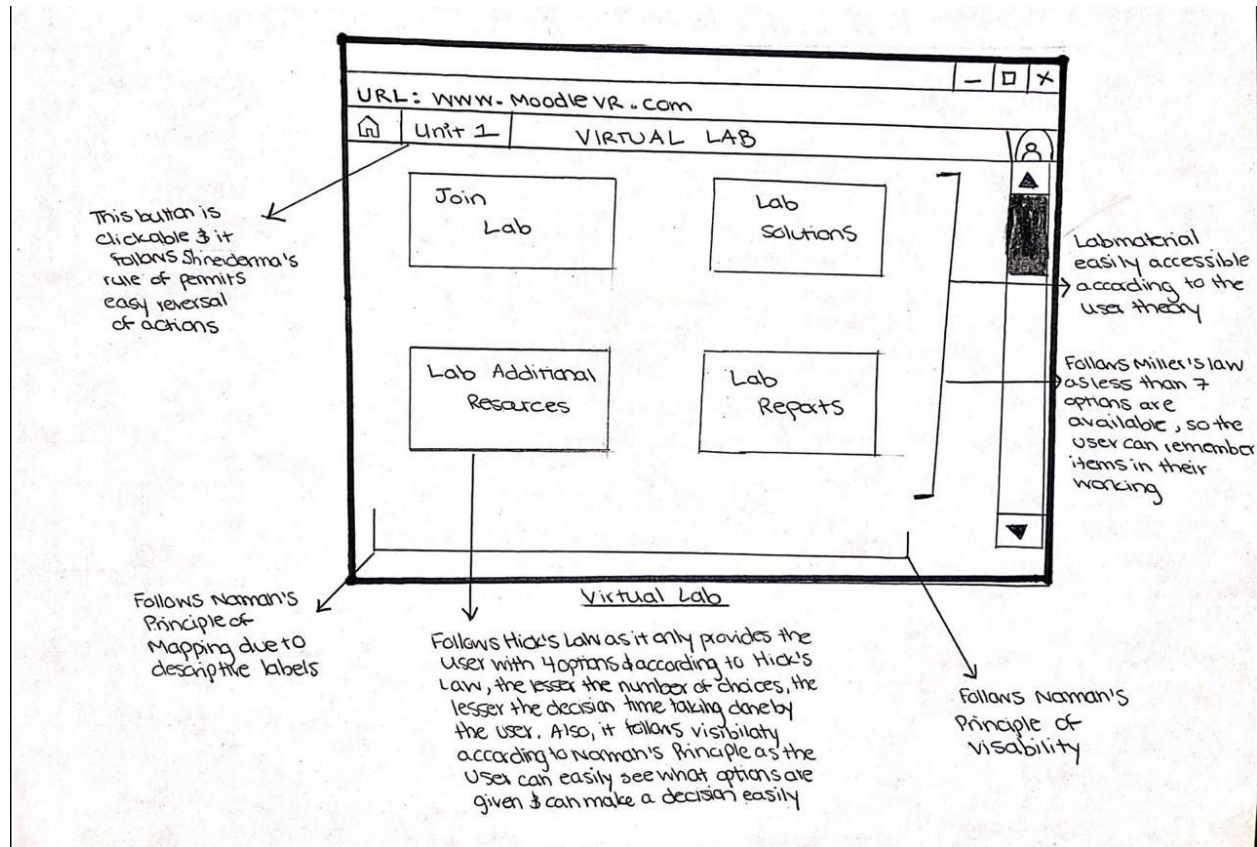 URL: www.MoodleVR.com
Unit 1
VIRTUAL LAB
Join
Lab
Lab
Solutions
Lab Additional
Resources
Lab
Reports
This button is
clickable & it
follows Shneiderma's
rule of permits
easy reversal
of actions
Labmaterial
easily accessible
according to the
user theory
Follows Miller's law
as less than 7
options are
available, so the
user can remember
items in their
working
Follows Norman's
Principle of
Mapping due to
descriptive labels
Virtual Lab
Follows Hick's Law as it only provides the
user with 4 options & according to Hick's
Law, the lesser the number of choices, the
lesser the decision time taking done by
the user. Also, it follows visibilaty
according to Norman's Principle as the
user can easily see what options are
given & can make a decision easily
Follows Norman's
Principle of
visability